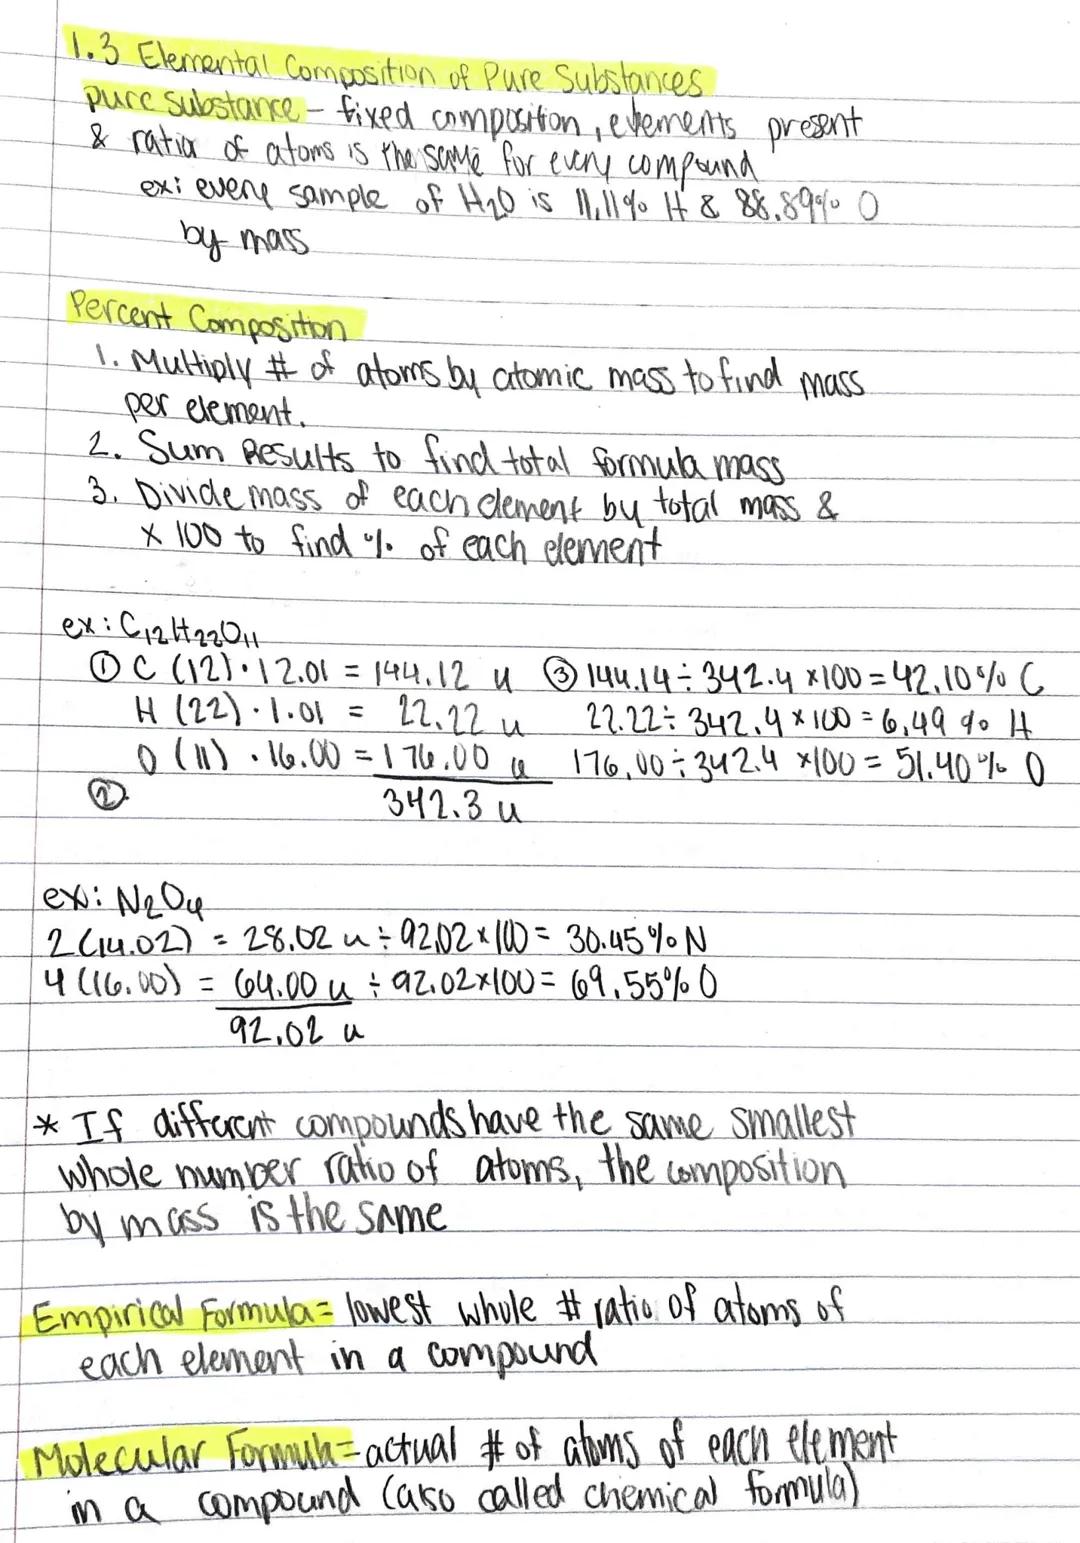 1.3 Elemental Composition of Pure Substances
pure substance - fixed composition, elements present
& ratio of atoms is the same for every compound
ex: every sample of H₂O is 11.11% H & 88.89% O
by mass
Percent Composition
1. Multiply # of atoms by atomic mass to find mass
per element.
2. Sum Results to find total formula mass
3. Divide mass of each element by total mass &
x 100 to find % of each element
ex: C₁₂H₂₂O₁₁
① C (12) · 12.01 = 144.12 u ③ 144.14 ÷ 342.4 x100 = 42.10% C
H (22) · 1.01 = 22.22 u 22.22 ÷ 342.4 x 100 = 6.49 % H
O (11) · 16.00 = 176.00 u 176.00 ÷ 342.4 x100 = 51.40% O
② 342.3 u
ex: N₂O₄
2(14.02) = 28.02 u ÷ 92.02 x 100 = 30.45% N
4(16.00) = 64.00 u ÷ 92.02x100 = 69.55% O
92.02 u
* If different compounds have the same smallest
whole number ratio of atoms, the composition
by mass is the same
Empirical Formula = lowest whole # ratio of atoms of
each element in a compound
Molecular Formula = actual # of atoms of each element
in a compound (also called chemical formula)